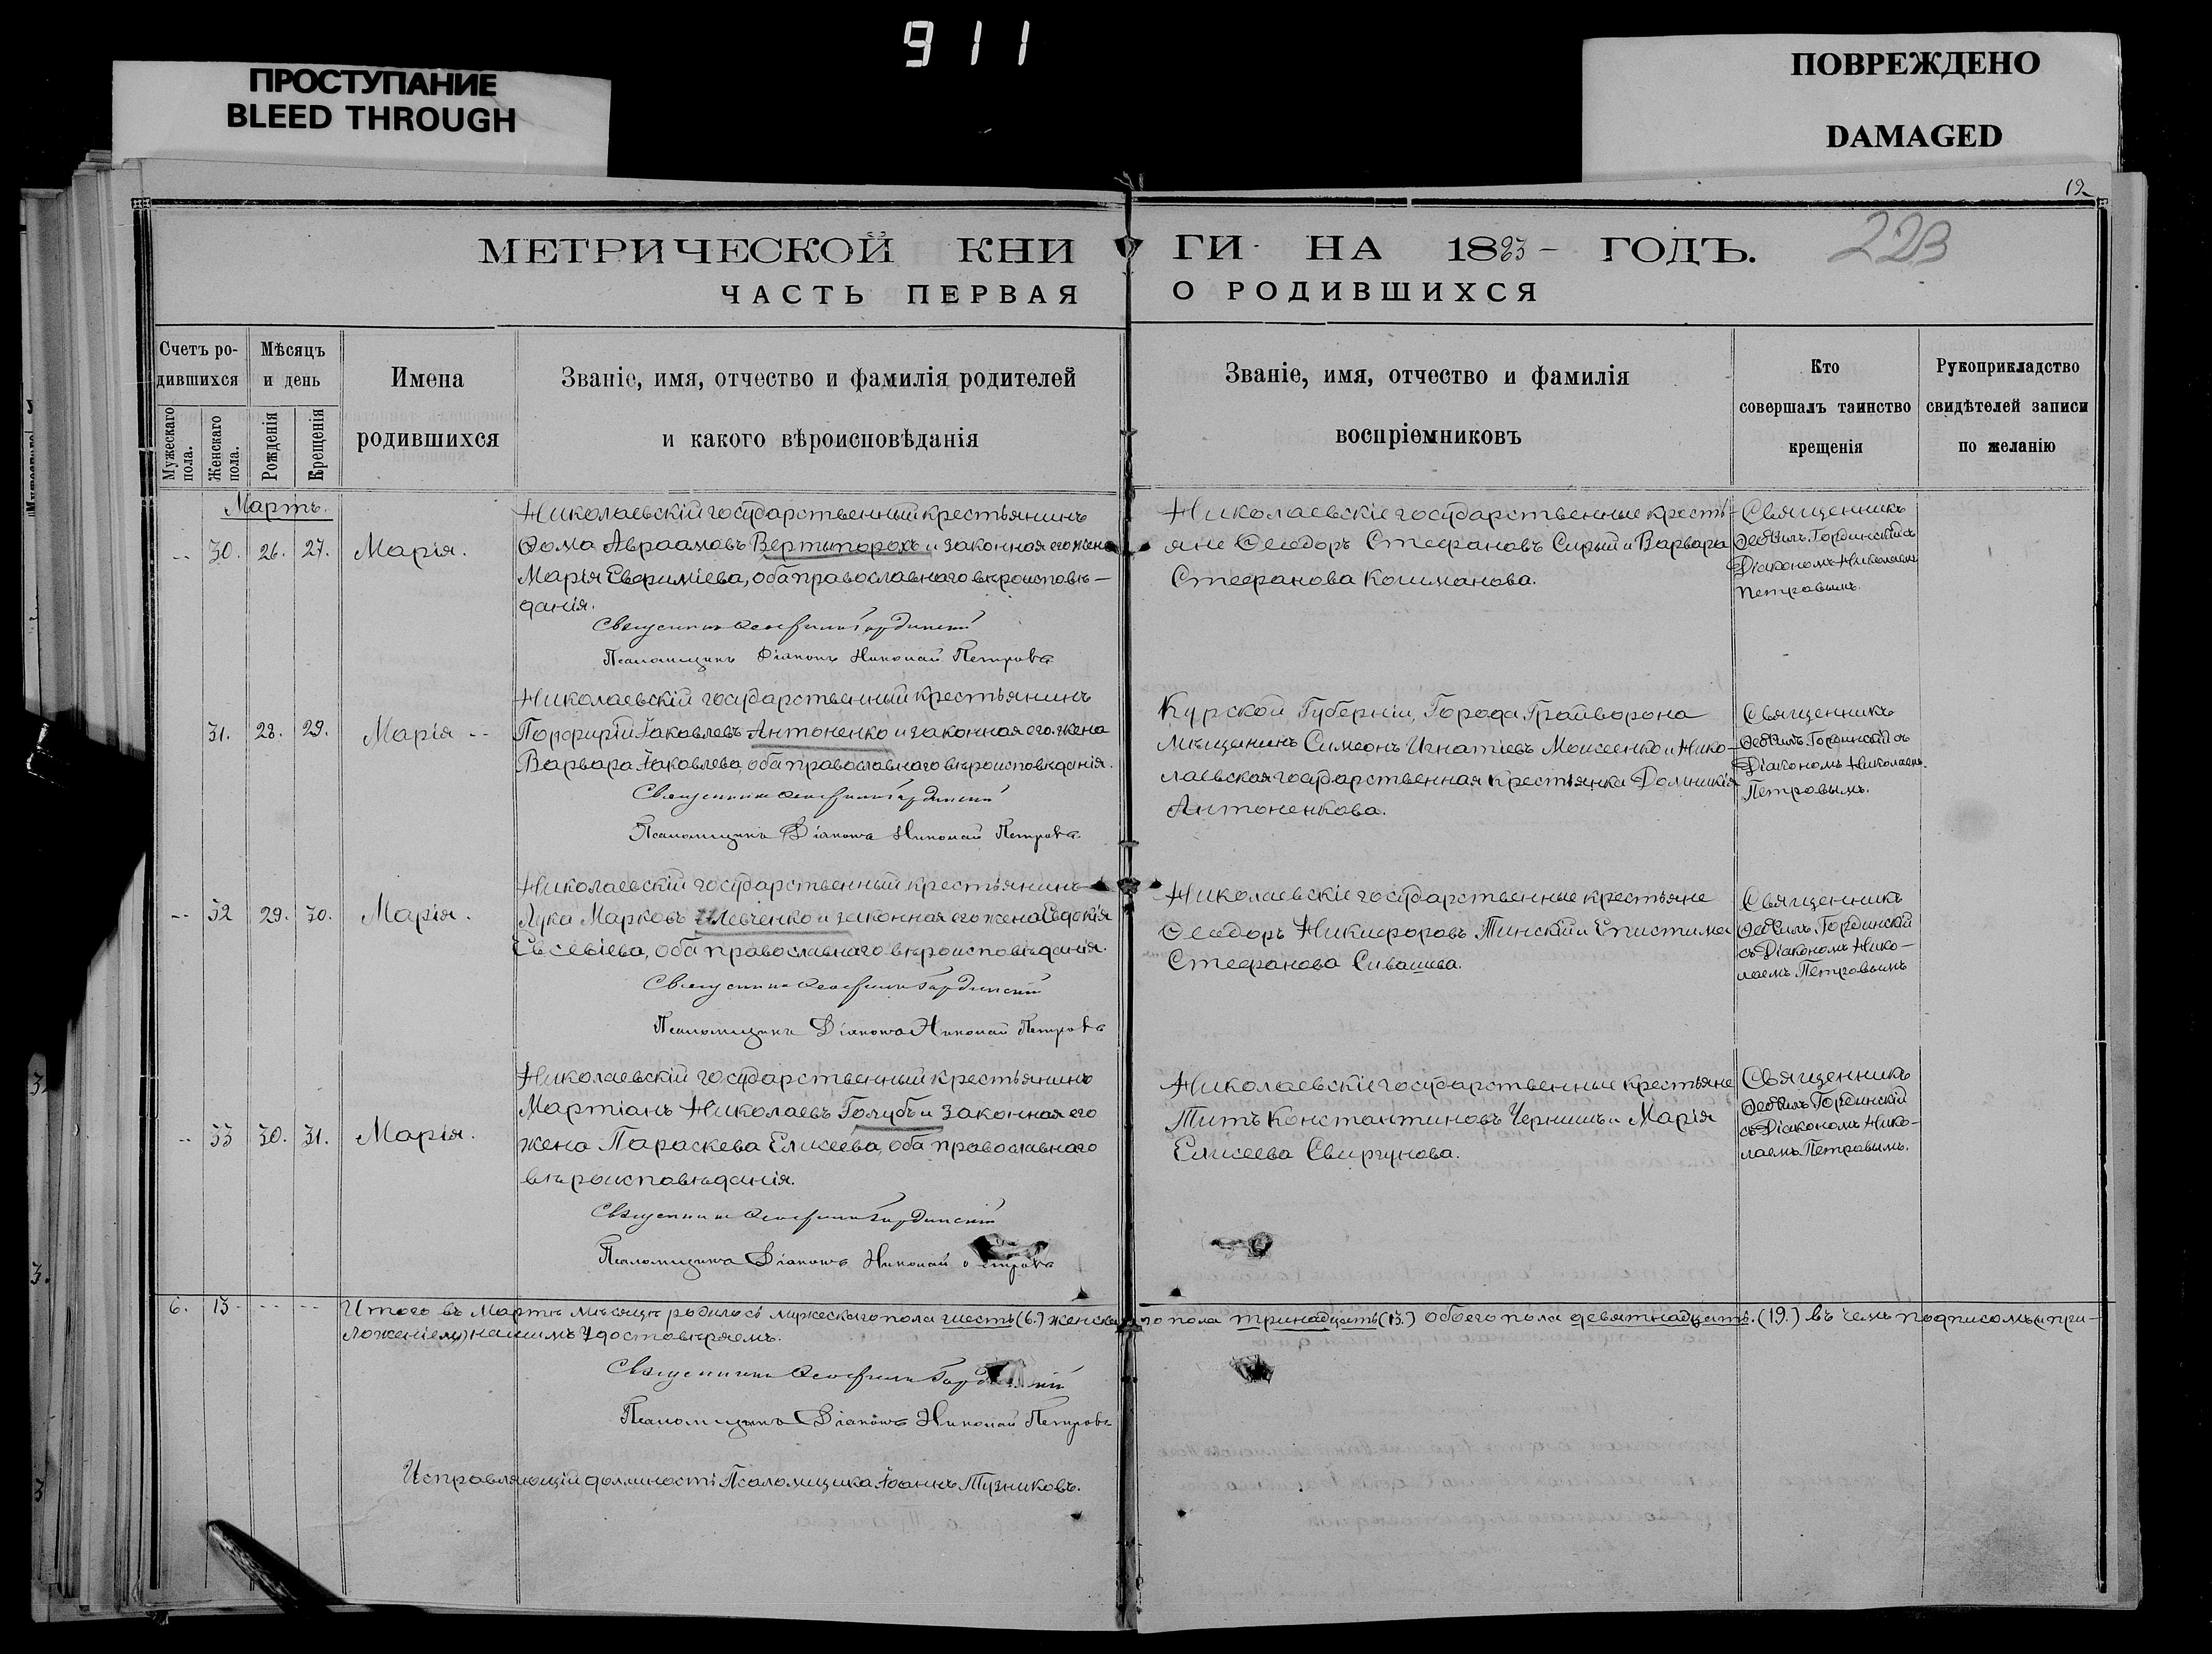 911
ПРОСТУПАНИЕ
BLEED THROUGH
ПОВРЕЖДЕНО
DAMAGED
12
МЕТРИЧЕСКОЙ КНИГИ НА 1883 ГОДЪ.
ЧАСТЬ ПЕРВАЯ О РОДИВШИХСЯ
Счетъ ро-
дившихся
Мужескаго
пола.
Женскаго
пола.
Мѣсяцъ
и день
Рожденія
Крещенія
Имена
родившихся
Званіе, имя, отчество и фамилія родителей
и какого вѣроисповѣданія
Званіе, имя, отчество и фамилія
воспріемниковъ
Кто
совершалъ таинство
крещенія
Рукоприкладство
свидѣтелей записи
по желанію
Мартъ.
-- 30. 26. 27. Марія.
Николаевскій государственный крестьянинъ
Ѳома Авраамовъ Вертипорохъ и законная его жена
Марія Евфиміева, оба православнаго вѣроисповѣ-
данія.
Священникъ Ѳеофилъ Гординскій
Псаломщикъ Діаконъ Николай Петровъ
Николаевскіе государственные кресть-
яне Ѳеодоръ Стефановъ Сирый и Варвара
Стефанова Кошманова.
Священникъ
Ѳеофилъ Гординскій съ
Діакономъ Николаемъ
Петровымъ.
31. 28. 29. Марія --
Николаевскій государственный крестьянинъ
Порфирій Іаковлевъ Антоненко и законная его жена
Варвара Іаковлева, оба православнаго вѣроисповѣданія.
Священникъ Ѳеофилъ Гординскій
Псаломщикъ Діаконъ Николай Петровъ
Курской Губерніи, Города Грайворона
мѣщанинъ Симеонъ Игнатіевъ Моисеенко и Нико-
лаевская государственная крестьянка Домникія
Антоненкова.
Священникъ
Ѳеофилъ Гординскій съ
Діакономъ Николаемъ
Петровымъ.
-- 32 29. 30. Марія.
Николаевскій государственный крестьянинъ
Лука Марковъ Шевченко и законная его жена Евдокія
Евсевіева, оба православнаго вѣроисповѣданія.
Священникъ Ѳеофилъ Гординскій
Псаломщикъ Діаконъ Николай Петровъ
Николаевскіе государственные крестьяне
Ѳеодоръ Никифоровъ Тинскій и Епистима
Стефанова Сивашева.
Священникъ
Ѳеофилъ Гординскій
съ Діакономъ Нико-
лаемъ Петровымъ
-- 33 30. 31. Марія.
Николаевскій государственный крестьянинъ
Мартіанъ Николаевъ Голубъ и законная его
жена Параскева Елисеева, оба православнаго
вѣроисповѣданія.
Священникъ Ѳеофилъ Гординскій
Псаломщикъ Діаконъ Николай Петровъ
Николаевскіе государственные крестьяне
Титъ Константиновъ Чернишъ и Марія
Елисеева Свиргунова.
Священникъ
Ѳеофилъ Гординскій
съ Діакономъ Нико-
лаемъ Петровымъ.
6. 13 -- -- Итого въ Мартѣ мѣсяцѣ родилось мужескаго пола шесть (6.) женскаго пола тринадцать (13.) обоего пола девятнадцать. (19.) въ чемъ подписомъ и при-
ложеніемъ нашимъ удостовѣряемъ.
Священникъ Ѳеофилъ Гординскій
Псаломщикъ Діаконъ Николай Петровъ
Исправляющій должность Псаломщика Іоаннъ Тузниковъ.